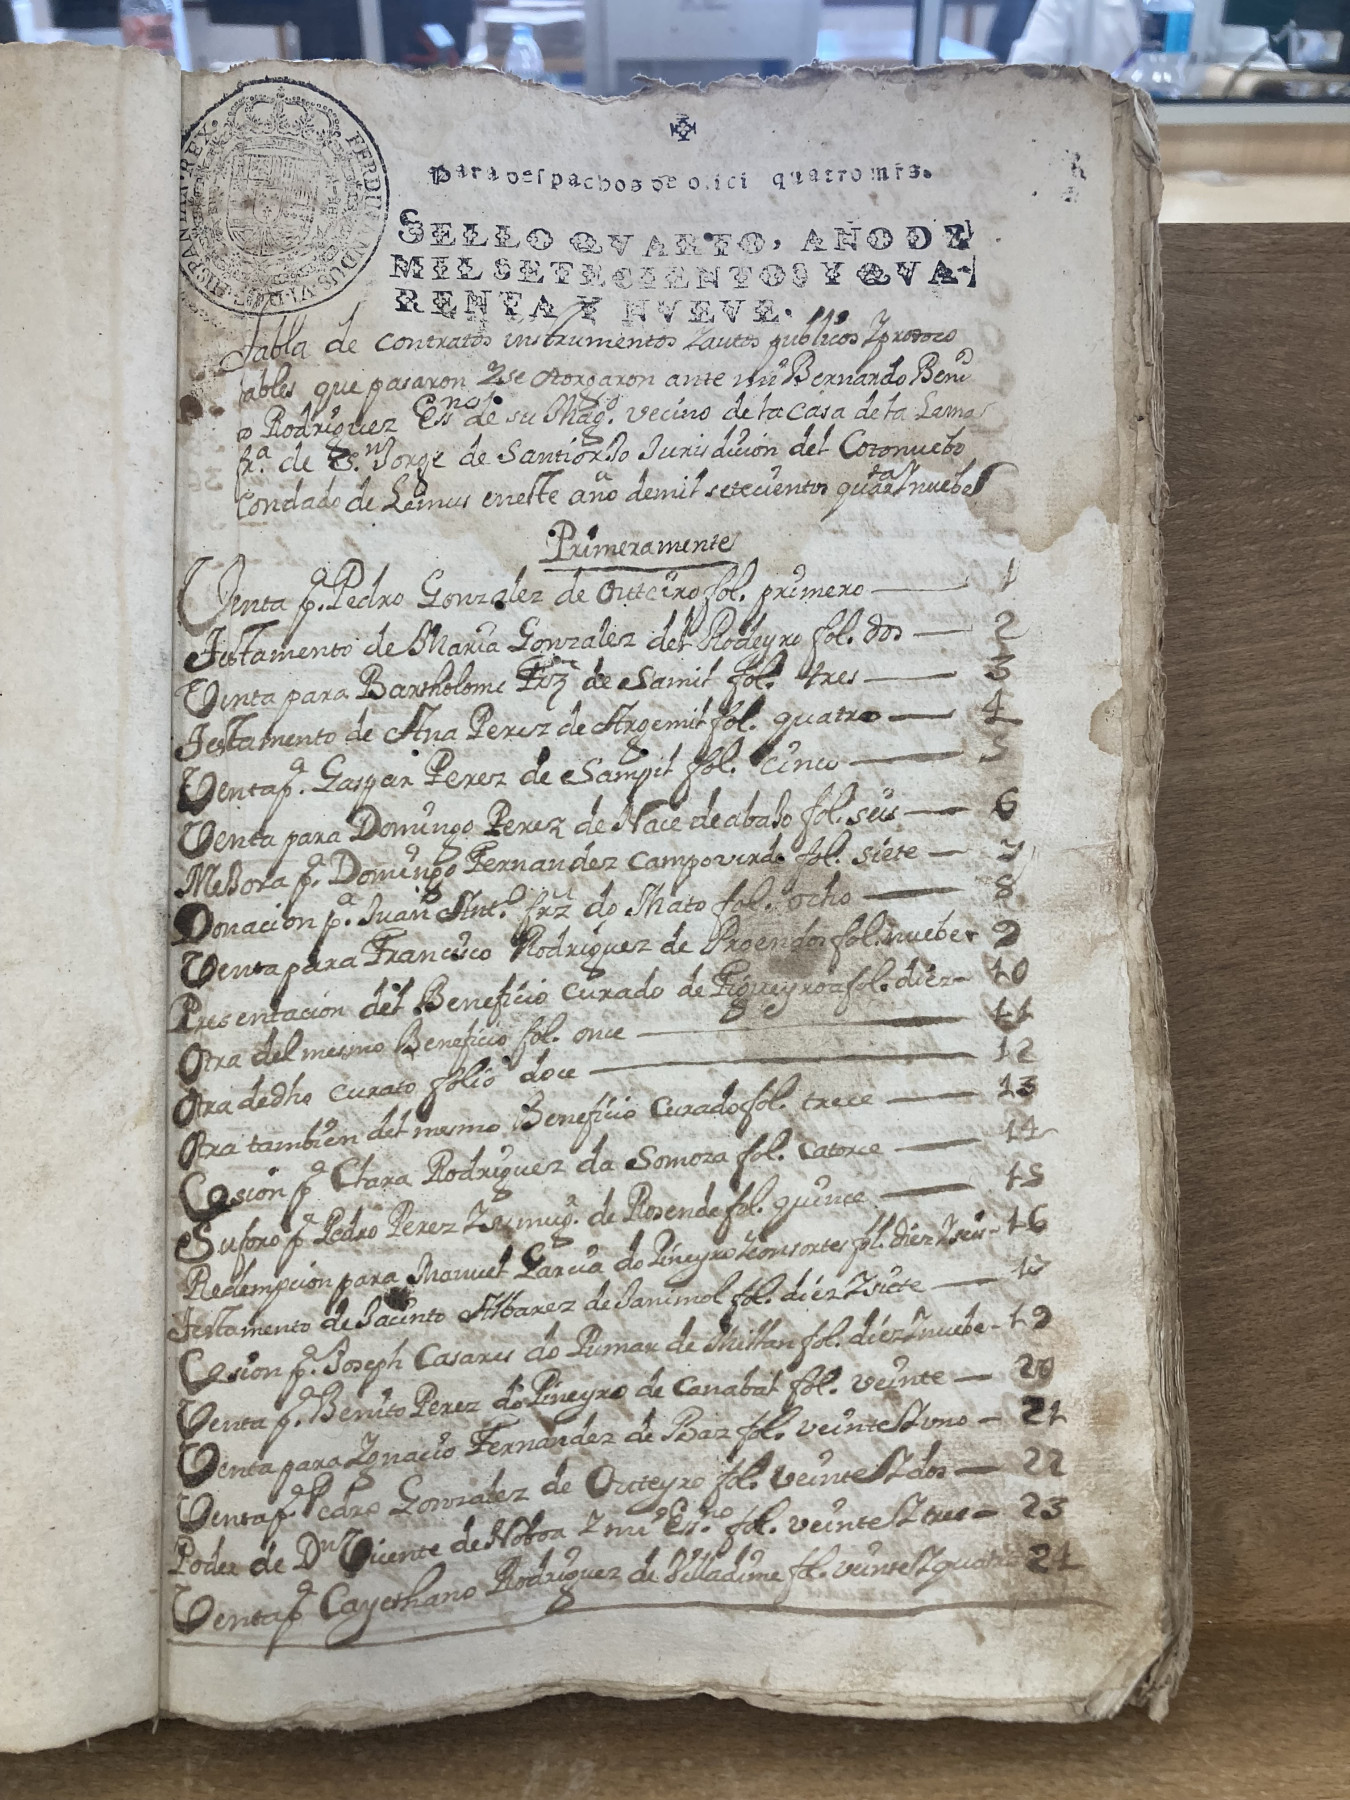 FERDINANDUS VI D G HISPANIAR REX
Para despachos de ofici quatro mrs.
SELLO QVARTO, AÑO DE
MIL SETECIENTOS Y QVA-
RENTA Y NVEVE.
Tabla de contratos instrumentos Y autos publicos Y protoco
lables que pasaron Y se otorgaron ante mi Bernardo Beni
o Rodriguez Essno de su Magd. vecino de la Casa de la Lama
fra. de Sn. Jorge de Santiorjo Jurisdicion del Cotonuebo
Condado de Lemus eneste año demil setecientos quarta Y nuebe
Primeramente
Venta pa. Pedro Gonzalez de Outeiro fol. primero 1
Testamento de Maria Gonzalez del Rodeyro fol. dos 2
Venta para Bartholome Frz de Samil fol. tres 3
Testamento de Ana Perez de Argemil fol. quatro 4
Venta pa. Gaspar Perez de Sampil fol. cinco 5
Venta para Domingo Perez de Nace de abajo fol. seis 6
Mejora pa. Domingo Fernandez Campoverde fol. siete 7
Donacion pa. Juan Anto. frz do Mato fol. ocho 8
Venta para Francisco Rodriguez de Proendos fol. nuebe 9
Presentacion del Beneficio Curado de Figueyroa fol. diez 10
Otra del mesmo Beneficio fol. once 11
Otra dedho curato folio doce 12
Otra tambien del mesmo Beneficio Curado fol. trece 13
Cesion pa. Clara Rodriguez da Somoza fol. catorce 14
Suforo pa. Pedro Perez Y su mugr. de Rosende fol. quince 15
Redempcion para Manuel Garcia do Pineyro Y consortes fol. diez Y seis 16
Testamento de Jacinto Albarez de Sanimol fol. diez Y siete 17
Cesion pa. Joseph Casares do Pumar de Millan fol. diez Y nuebe 19
Venta pa. Benito Perez do Pineyro de Canabal fol. veinte 20
Venta para Ignacio Fernandez de Baz fol. veinte Y uno 21
Venta pa. Pedro Gonzalez de Outeyro fol. veinte Y dos 22
Poder de Dn Vicente de Noboa Y mi Essno. fol. veinte Y tres 23
Venta pa. Cayethano Rodriguez de Villadime fol. veinte Y quatro 24